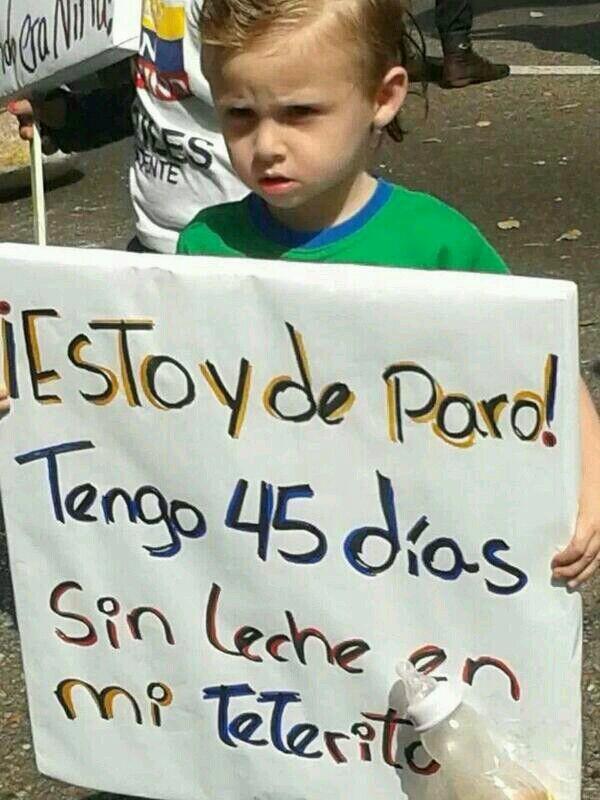 era Niña
¡ESToy de Paro!
Tengo 45 días
Sin Leche en
mi TeTerito